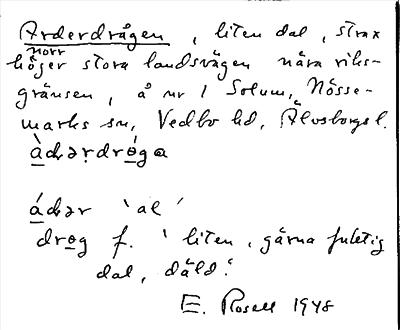 Arderdrågen, liten dal, strax
norr
höger stora landsvägen nära riks-
gränsen, å nr 1 Solum, Nösse-
marks sn, Vedbo hd, Älvsborgs l.
àdərdrɵga
ádər 'al'
drɵg f. 'liten, gärna fuktig
dal, däld.'
E. Rosell 1948